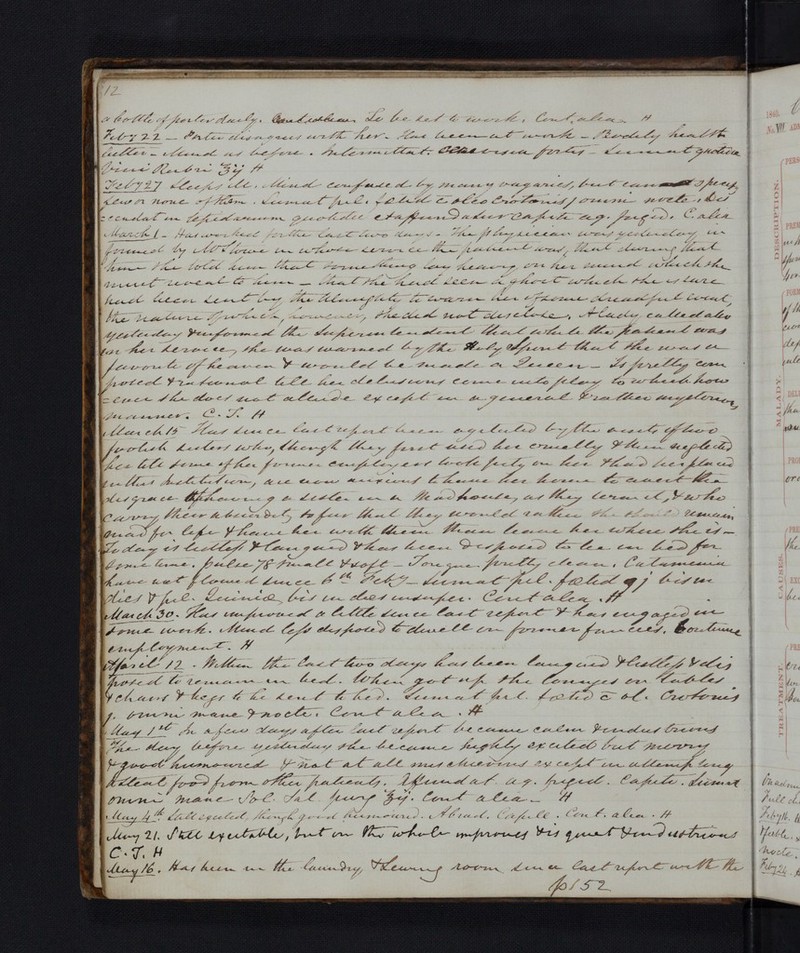 12
a bottle of porter daily. To be set to work. Cont. alea H
Feby 22 – Porter disagrees with her. Has been at work – Bodily health
better – Mind as before. Intermittat. cerevisia fortis – Sumat quotidie
Vini Rubri ʒij H
Feby 27 Sleeps ill. Mind confused by many vagaries, but can specify
few or none of them. Sumat pil. fœtid c oleo Crotonis j omni nocte. Des
cendat in tepidarium quotidie et affundatur capite aq. frigid. C. alea
March 1 – Has worked for the last two days. The physician was yesterday in
formed by Mr in whose service the patient was, that during that
time she told him that something lay heavy on her mind which she
must reveal to him – that she had seen a ghost which she is sure
had been sent by the Almighty to warn her of some dreadful event,
the nature of which, however, she did not disclose. A lady called also
yesterday & informed the Superintendent that while the patient was
in her service, she was warned by the Holy Spirit that she was a
favorite of heaven & would be made a Queen – Is pretty com
posed & rational till her delusions come into play to which how
=ever she does not allude except in a general & rather mysterious
manner. C. T. H
March 15 Has since last report been agitated by the visits of two
foolish sisters who, though they first used her cruelly & then neglected
her till some of her former employers took pity on her & had her placed
in this Institution, are now anxious to have her home to avert the
disgrace of having a sister in a Madhouse, as they term it, & who
carry their absurdity so far that they would rather she should remain
mad for life & have her with them than leave her where she is –
Today is listless & languid & has been disposed to lie in bed for
some time. Pulse 78 small & soft – Tongue pretty clean. Catamenia
have not flowed since 6th Feby – Sumat pil. fœtid gj bis in
dies & pil. Quiniæ bis in dies insuper. Cont alea. H
March 30. Has improved a little since last report & has engaged in
some work. Mind less disposed to dwell on former fancies. Continue
employment. H
April 12. Within the last two days has been languid & listless & dis
posed to remain in bed. When got up she lounges on tables
& chairs & begs to be sent to bed. Sumat pil. fœtid c ol. Crotonis
j. omni mane & nocte. Cont alea. H
May 1st In a few days after last report became calm & industrious
The day before yesterday she became highly excited but merry
& good humoured & not at all mischievous except in attempting
to steal food from other patients. Affundat aq. frigid. Capite. Sumat
omni mane Sol. Sal purg ʒij. Cont alea – H
May 4th Still excited, though good humoured. Abrad. Capill. Cont. alea. H
May 21. Still excitable, but on the whole improves & is quiet & industrious
C. T. H
May 16. Has been in the laundry, & Sewing room since last report with the
p152